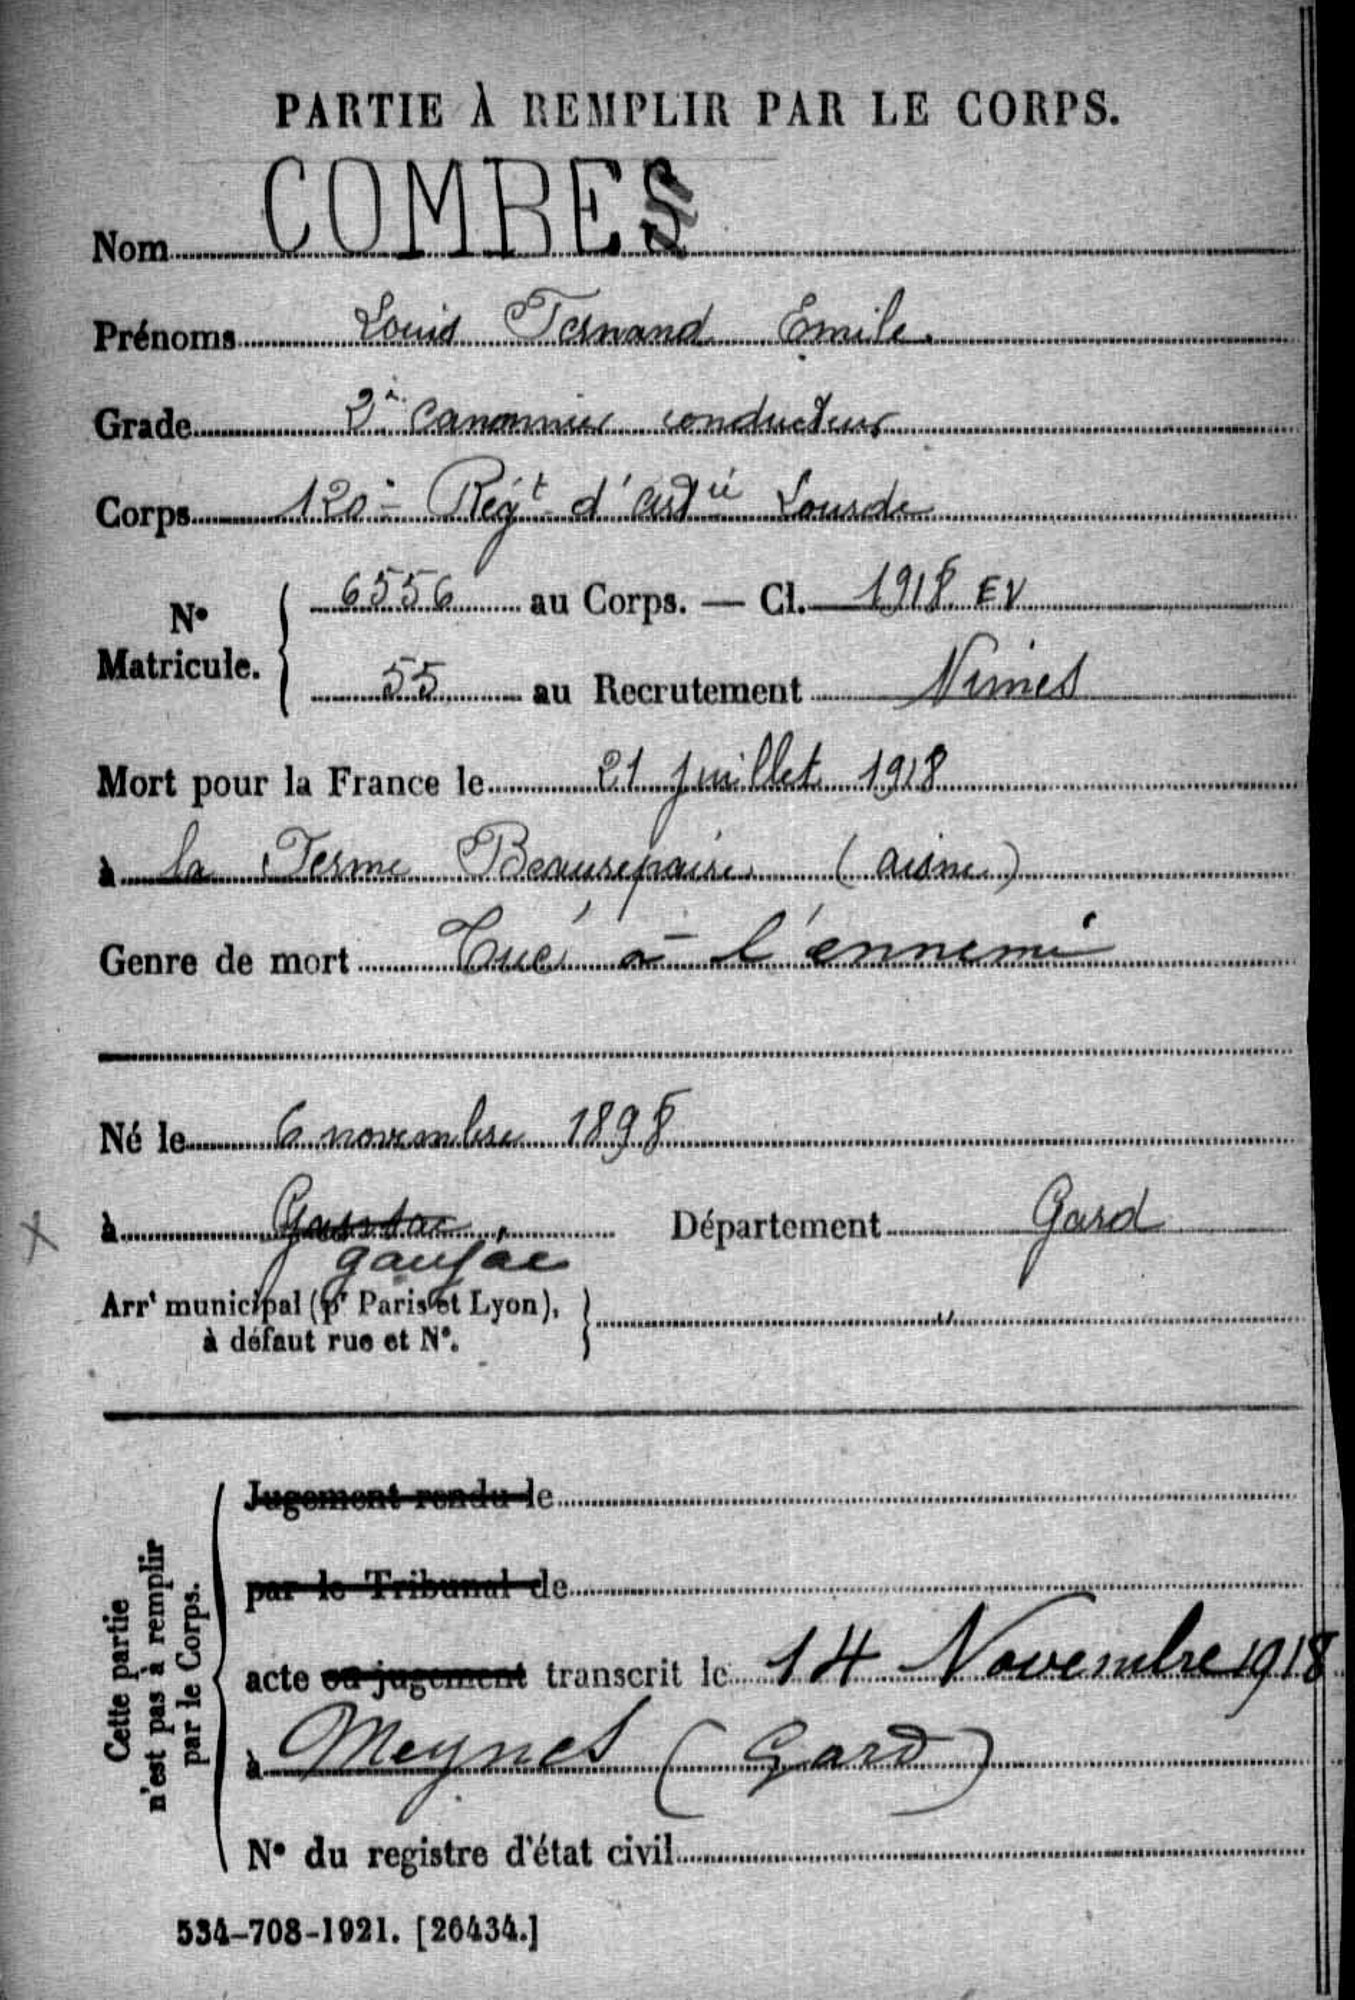 PARTIE À REMPLIR PAR LE CORPS.
Nom COMBES
Prénoms Louis Fernand Emile.
Grade 2e canonnier conducteur
Corps 120e Régt d'artie Lourde
No Matricule. 6556 au Corps. — Cl. 1918 EV
55 au Recrutement Nimes
Mort pour la France le 21 juillet 1918
à la Ferme Beaurepaire (aisne)
Genre de mort Tué à l'ennemi
Né le 6 novembre 1898
à Département Gard
gaujac
Arrt municipal (pr Paris et Lyon), "
à défaut rue et No.
Cette partie
n'est pas à remplir
par le Corps.
Jugement rendu le
par le Tribunal de
acte ou jugement transcrit le 14 Novembre 1918
à Meynes (Gard)
No du registre d'état civil
534-708-1921. [26434.]